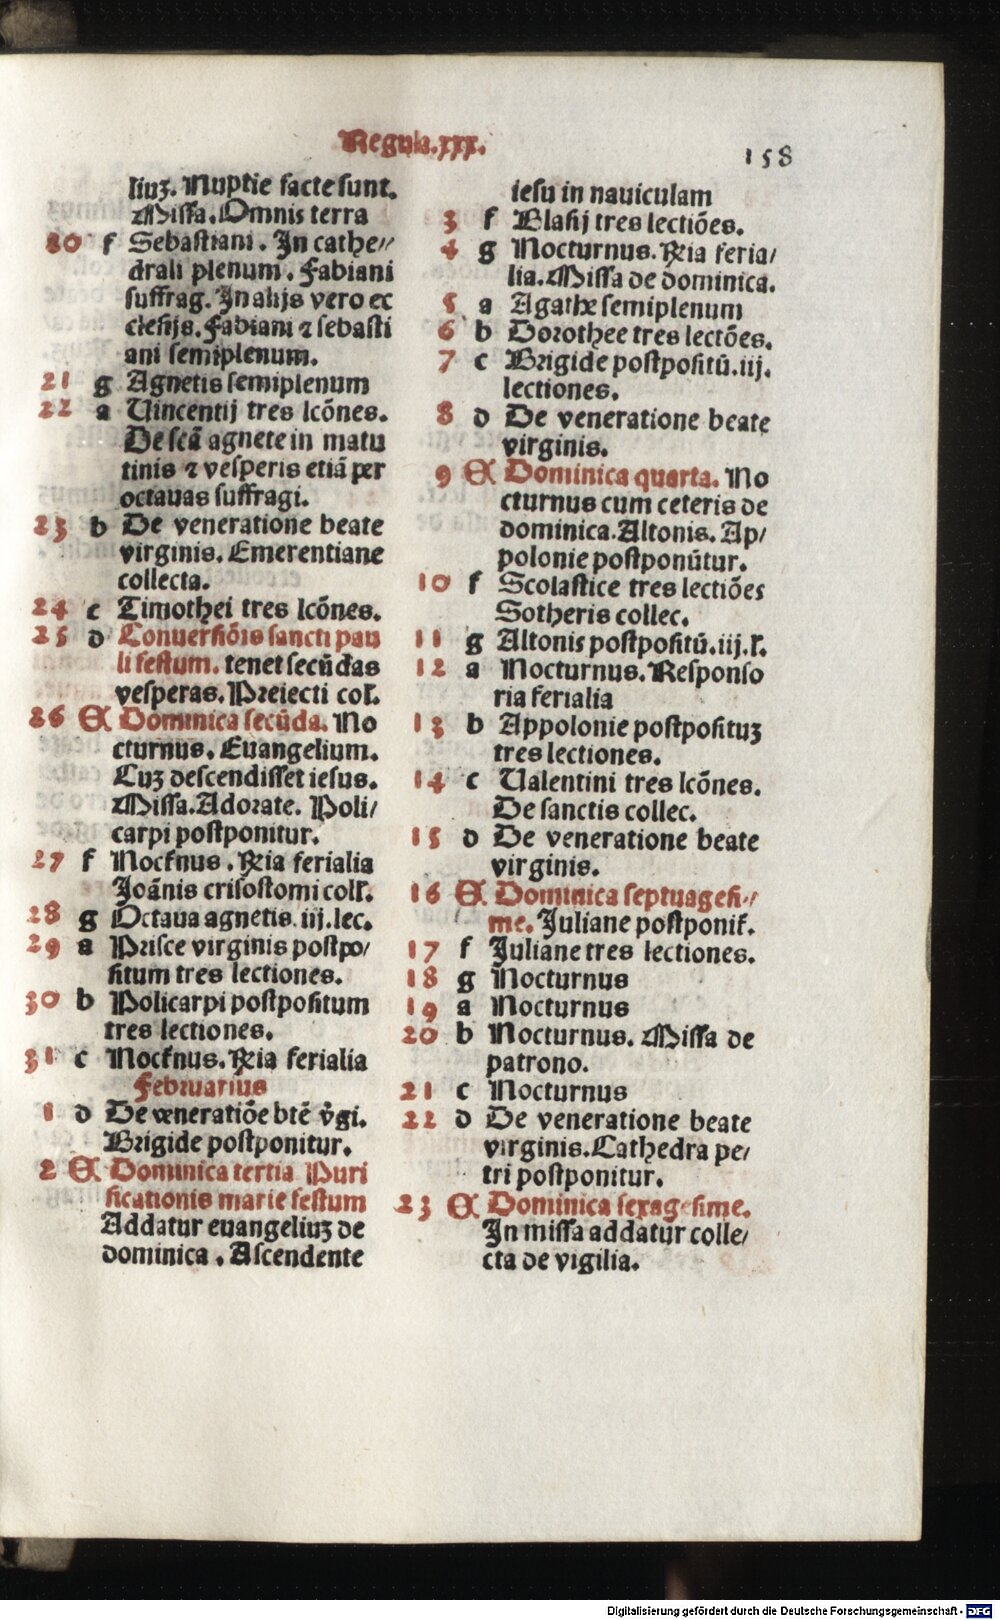 Regula.xxx.
158
liuʒ. Nuptie facte sunt.
Missa. Omnis terra
20 f Sebastiani. In cathe//
drali plenum. Fabiani
suffrag. In alijs vero ec
clesijs. Fabiani ⁊ sebasti
ani semiplenum.
21 g Agnetis semiplenum
22 a Uincentij tres lcōnes.
De scā agnete in matu
tinis ⁊ vesperis etiā per
octauas suffragi.
23 b De veneratione beate
virginis. Emerentiane
collecta.
24 c Timothei tres lcōnes.
25 d Conuersiōis sancti pau
li festum. tenet secūdas
vesperas. Preiecti col'.
26 A Dominica secūda. No
cturnus. Euangelium.
Cuʒ descendisset iesus.
Missa. Adorate. Poli/
carpi postponitur.
27 f Noct'nus. Ria ferialia
Joānis crisostomi coll'.
28 g Octaua agnetis. iij. lec.
29 a Prisce virginis postpo/
situm tres lectiones.
30 b Policarpi postpositum
tres lectiones.
31 c Noct'nus. Ria ferialia
Februarius
1 d De veneratiōe btē v̄gi.
Brigide postponitur.
2 A Dominica tertia Puri
ficationis marie festum
Addatur euangeliuʒ de
dominica. Ascendente
iesu in nauiculam
3 f Blasij tres lectiōes.
4 g Nocturnus. Ria feria/
lia. Missa de dominica.
5 a Agathe semiplenum
6 b Dorothee tres lectōes.
7 c Brigide postpositū. iij.
lectiones.
8 d De veneratione beate
virginis.
9 A Dominica quarta. No
cturnus cum ceteris de
dominica. Altonis. Ap/
polonie postponūtur.
10 f Scolastice tres lectiōes
Sotheris collec.
11 g Altonis postpositū. iij. l'.
12 a Nocturnus. Responso
ria ferialia
13 b Appolonie postposituʒ
tres lectiones.
14 c Ualentini tres lcōnes.
De sanctis collec.
15 d De veneratione beate
virginis.
16 A Dominica septuagesi//
me. Juliane postponit'.
17 f Juliane tres lectiones.
18 g Nocturnus
19 a Nocturnus
20 b Nocturnus. Missa de
patrono.
21 c Nocturnus
22 d De veneratione beate
virginis. Cathedra pe/
tri postponitur.
23 A Dominica sexagesime.
In missa addatur colle/
cta de vigilia.
Digitalisierung gefördert durch die Deutsche Forschungsgemeinschaft - DFG